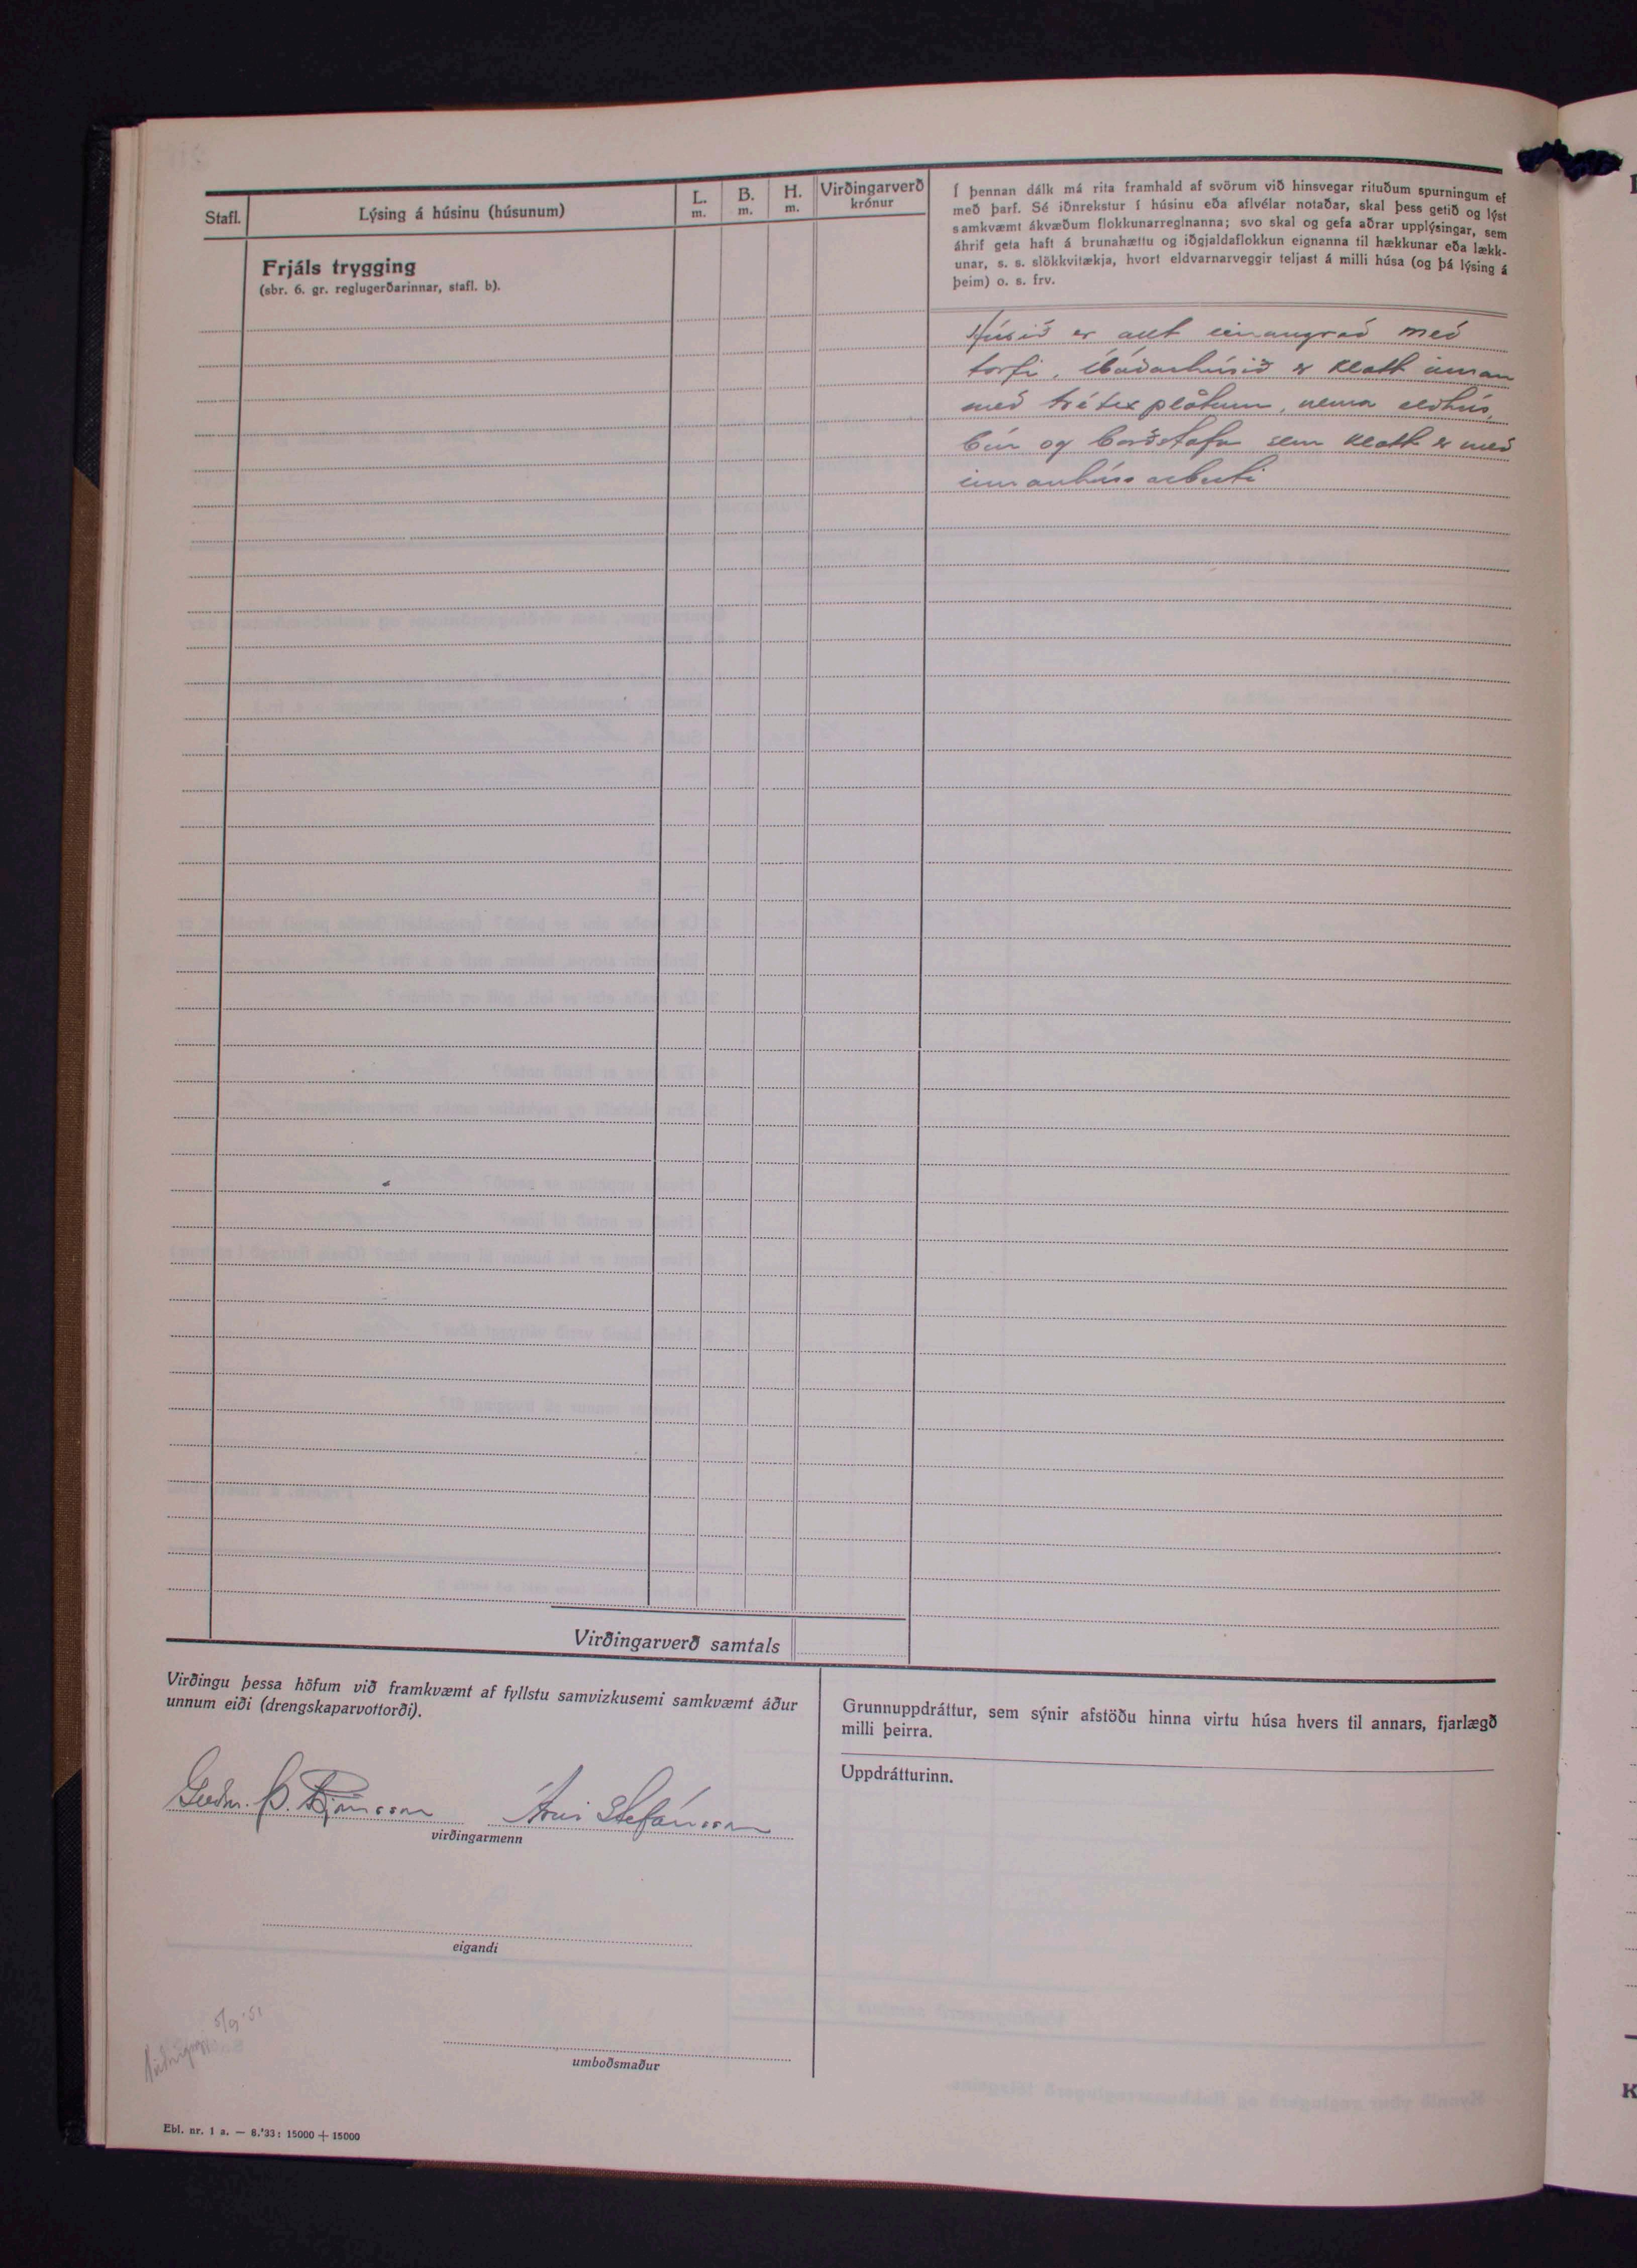 Stafl.
Lýsing á húsinu (húsunum)
L.
m.
B.
m.
H.
m.
Virðingarverð
krónur
Frjáls trygging
(sbr. 6. gr. reglugerðarinnar, stafl. b).
Í þennan dálk má rita framhald af svörum við hinsvegar rituðum spurningum ef
með þarf. Sé iðnrekstur í húsinu eða aflvélar notaðar, skal þess getið og lýst
samkvæmt ákvæðum flokkunarreglnanna; svo skal og gefa aðrar upplýsingar, sem
áhrif geta haft á brunahættu og iðgjaldaflokkun eignanna til hækkunar eða lækk-
unar, s. s. slökkvitækja, hvort eldvarnarveggir teljast á milli húsa (og þá lýsing á
þeim) o. s. frv.
Húsið er allt einangrað með
torfi. Íbúðarhúsið er klætt innan
með trétex plötum, nema eldhús,
búr og borðstofa sem klætt er með
innanhúss asbesti
Virðingarverð samtals
Virðingu þessa höfum við framkvæmt af fyllstu samvizkusemi samkvæmt áður
unnum eiði (drengskaparvottorði).
Guðm. Þ. Björnsson Árni Stefánsson
virðingarmenn
eigandi
umboðsmaður
Grunnuppdráttur, sem sýnir afstöðu hinna virtu húsa hvers til annars, fjarlægð
milli þeirra.
Uppdrátturinn.
5/9 '51
Ebl. nr. 1 a. — 8.'33: 15000 + 15000